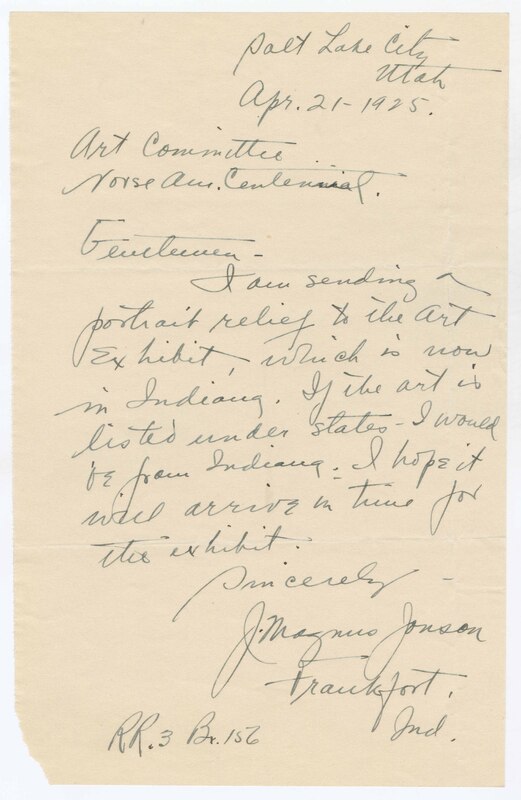 Salt Lake City
Utah
Apr. 21-1925.
Art Committee
Norse Am. Centennial.
Gentlemen -
I am sending a
portrait relief to the Art
Exhibit, which is now
in Indiana. If the art is
listed under states - I would
be from Indiana. I hope it
will arrive in time for
the exhibit.
Sincerely -
J. Magnus Jonson
Frankfort,
Ind.
R.R. 3 Bx. 156